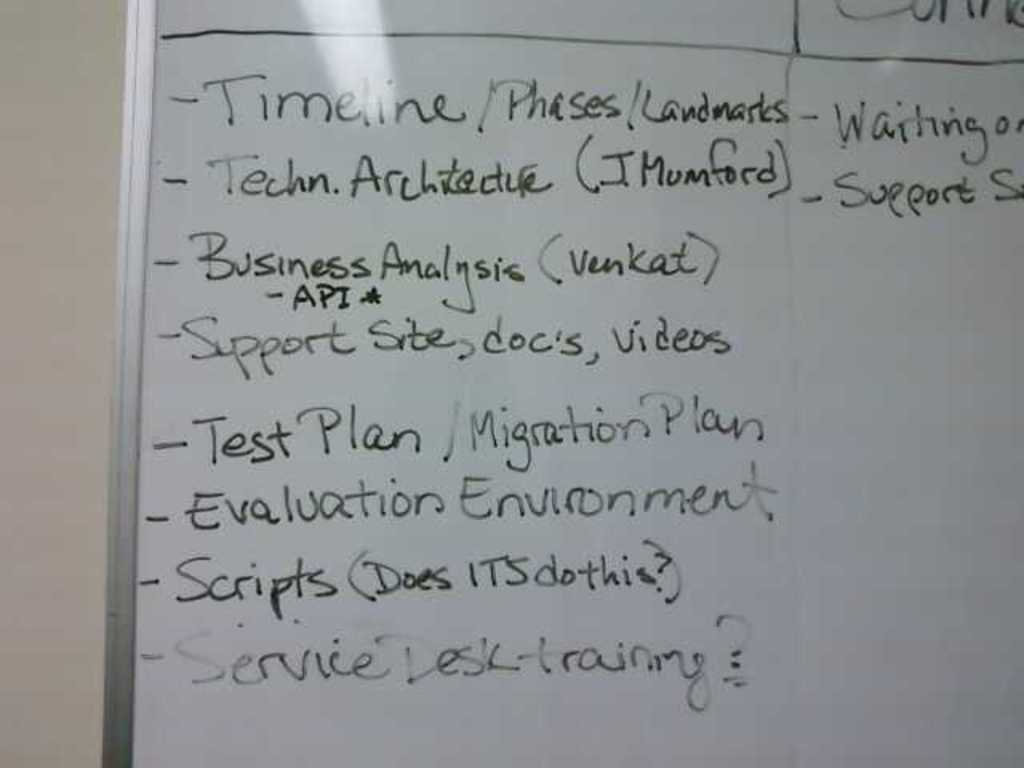 - Timeline / Phases / Landmarks
- Techn. Architecture (J Mumford)
- Business Analysis (Venkat)
- API *
- Support Site, doc's, videos
- Test Plan / Migration Plan
- Evaluation Environment
- Scripts (Does ITS do this?)
- Service Desk - training ?
- Waiting on
- Support